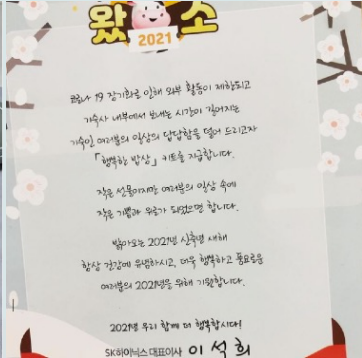 왔소
2021
코로나 19 장기화로 인해 외부 활동이 제한되고
기숙사 내부에서 보내는 시간이 길어지는
기숙인 여러분의 일상의 답답함을 덜어 드리고자
「행복한 밥상」 키트를 지급합니다.
작은 선물이지만 여러분의 일상 속에
작은 기쁨과 위로가 되었으면 합니다.
밝아오는 2021년 신축년 새해
항상 건강에 유념하시고, 더욱 행복하고 풍요로운
여러분의 2021년을 위해 기원합니다.
2021년 우리 함께 더 행복합시다!
SK하이닉스 대표이사 이석희